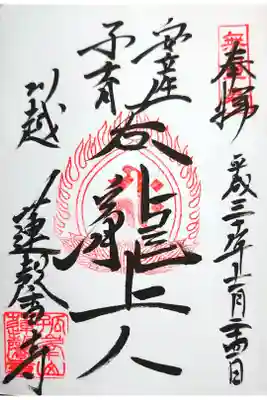 奉拝
平成三十年十一月二十四日
安産
子育
呑龍上人
川越
蓮馨寺